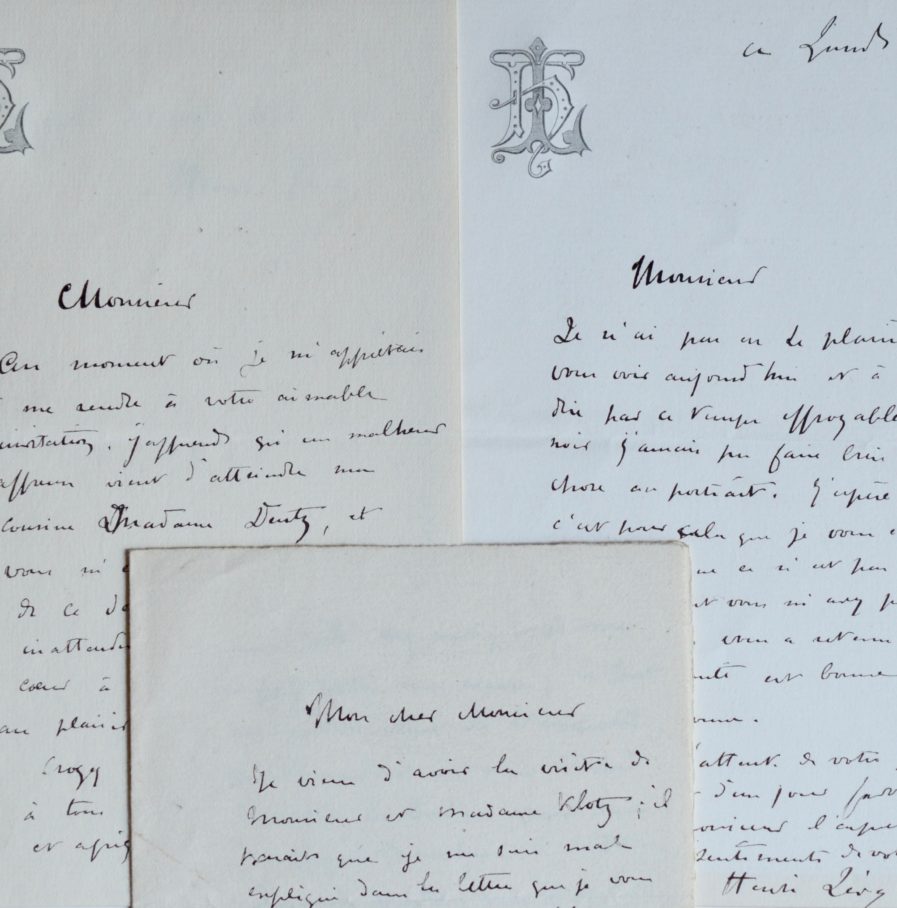 Monsieur
Au moment où je m'apprêtais
à me rendre à votre aimable
invitation, j'apprends qu'un malheur
affreux vient d'atteindre ma
cousine Madame Deutz, et
vous m'
de ce
inattendu
cœur à
au plaisir
Croyez
à tous
et
ce Lundi
Monsieur
Je n'ai pas eu le plaisir
vous voir aujourd'hui et à
dire par ce temps effroyable
noir j'amais pu faire
chose au portrait. J'espère
c'est pour cela que je vous
ce n'est pas
vous m'avez
vous a retenu
est bonne
attente de votre
d'un jour
monsieur l'
sentiments
Henri Lévy
Mon cher Monsieur
Je viens d'avoir la visite de
Monsieur et Madame Klotz ; il
parait que je me suis mal
expliqué dans la lettre que je vous